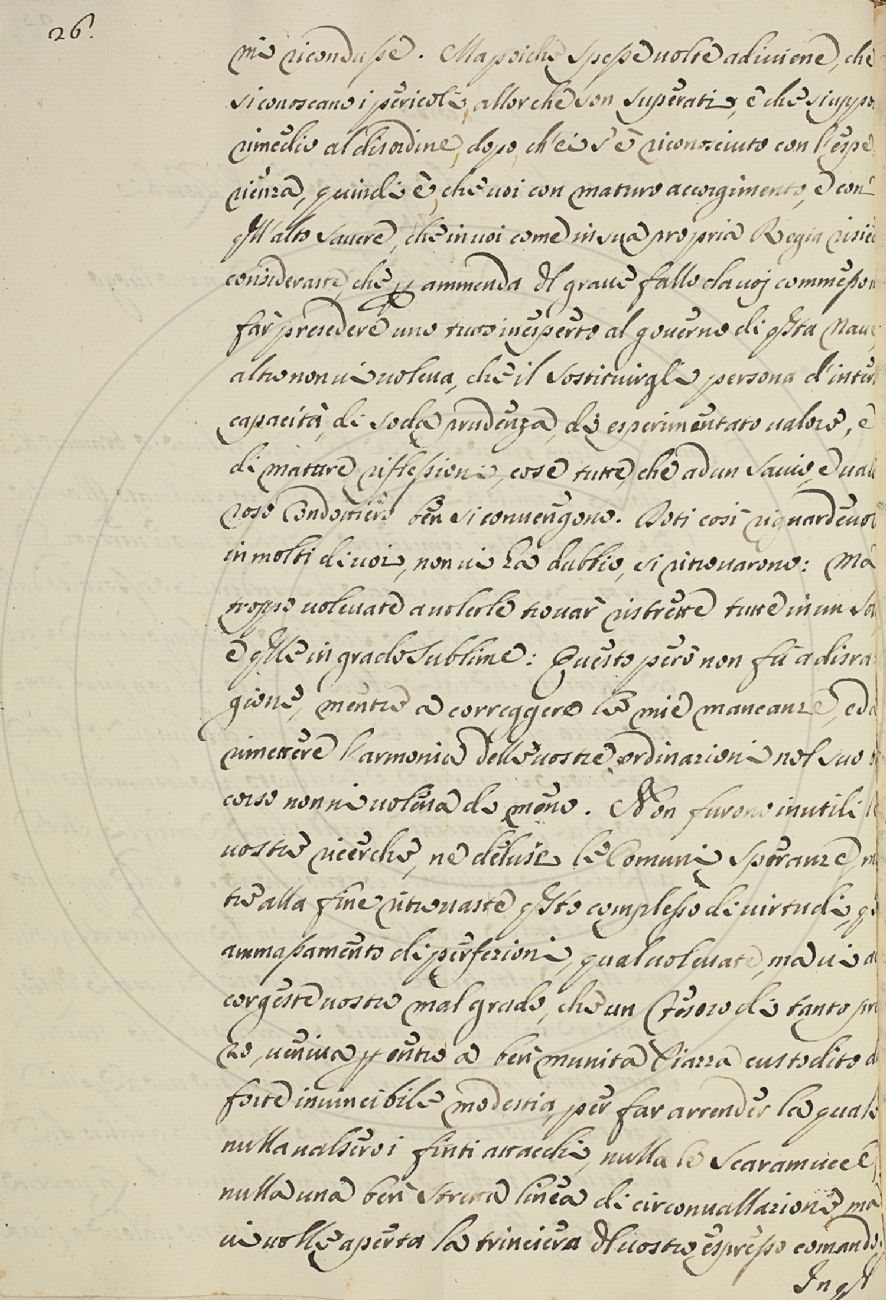 26.
me ricondusse. Ma poiche spesse volte adiuiene, che
si conoscano i pericoli, allorche son superati, e che si appo
rimedio al disordine, dopo, ch'ei s'è riconosciuto con l'espe
rienza, quindi è, che uoi con maturo accorgimento, e con
qll'alto sauere, che in uoi come in sua propria Regia risie
consideraste, che p ammenda dl graue fallo da uoj commesso
far presedere uno tutto inesperto al gouerno di qsta Naue,
altro non ui uoleua, che il sostituirgli persona d'inter
capacità, di soda prudenza, di esperimentato ualore, e
di mature riflessioni, cose tutte che ad un sauio, e ualo
roso Condottiero ben si conuengono. Doti così riguardeuoli
in molti di uoi, non ui ha dubbio, si ritrouarono: Ma
troppo uoleuate a uolerle trouar ristrette tutte in un so
e qlle in grado sublime: Questo però non fù a disra
gione, mentre a correggere le mie mancanze, ed a
rimettere l'armonia delle uostre ordinazioni nel suo
corso non ui uoleua di meno. Non furono inutili le
uostre ricerche, ne deluse le Comuni speranze, m
tre alla fine ritrouaste qsto complesso di uirtudi, q
ammassamento di perfezioni, qual uoleuate, ma ui a
corgeste uostro mal grado, che un Tesoro di tanto pr
zo, ueniua p entro a ben munita Piazza custodito d
forte inuincibile modestia, per far arrender la quale
nulla ualsero i finti attacchi, nulla le Scaramucce,
nulla una ben stretta linea di circonuallazione, ma
ui uolle aperta la trinciera dl uostro espresso comando,
In qst